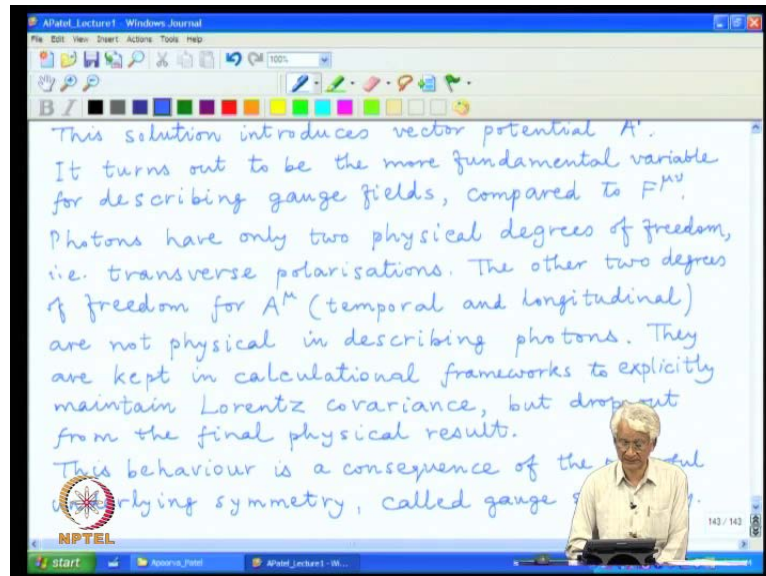 APatel_Lecture1 - Windows Journal
File Edit View Insert Actions Tools Help
100%
B I
This solution introduces vector potential
It turns out to be the more fundamental variable
for describing gauge fields, compared to F^μν.
Photons have only two physical degrees of freedom,
i.e. transverse polarisations. The other two degrees
of freedom for A^μ (temporal and longitudinal)
are not physical in describing photons. They
are kept in calculational frameworks to explicitly
maintain Lorentz covariance, but drop out
from the final physical result.
This behaviour is a consequence of the
underlying symmetry, called gauge
143 / 143
NPTEL
start Apoorva_Patel APatel_Lecture1 - Wi...